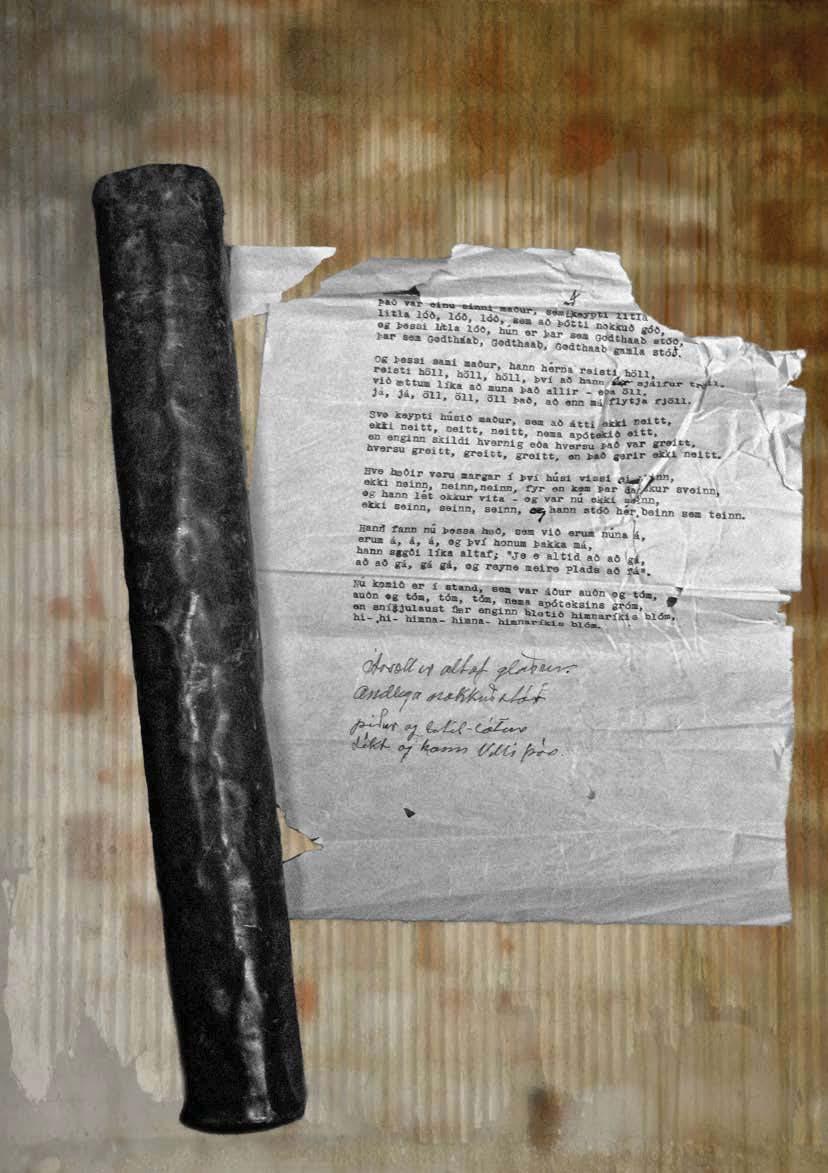 Það var einu sinni maður, sem keypti litla
litla lóð, lóð, lóð, sem að þótti nokkuð góð,
og þessi litla lóð, hún er þar sem Godthaab stóð,
þar sem Godthaab, Godthaab, Godthaab gamla stóð.
Og þessi sami maður, hann hérna reisti höll,
reisti höll, höll, höll, því að hann sjálfur tröll.
við ættum líka að muna það allir - eða öll.
já, já, öll, öll, öll það, að enn má flytja fjöll.
Svo keypti húsið maður, sem að átti ekki neitt,
ekki neitt, neitt, neitt, nema apótekið eitt,
en enginn skildi hvernig eða hversu það var greitt,
hversu greitt, greitt, greitt, en það gerir ekki neitt.
Hve hæðir voru margar í því húsi vissi
ekki neinn, neinn,neinn, fyr en kom þar danskur sveinn,
og hann lét okkur vita - og var nú ekki seinn,
ekki seinn, seinn, seinn, og hann stóð hér beinn sem teinn.
Hann fann nú þessa hæð, sem við erum núna á,
erum á, á, á, og því honum þakka má,
hann sagði líka altaf; "Je e altid að að gá,
að að gá, gá gá, og rayne meire plads að fá".
Nú komið er í stand, sem var áður auðn og tóm,
auðn og tóm, tóm, tóm, nema apóteksins gróm,
en sníkjulaust fær enginn blotið himnaríkis blóm,
hi-,hi- himna- himna- himnaríkis blóm.
altaf glaður
Andlega nokkuð stór
þíður og lítil-látur
Líkt og hann Villi Þór